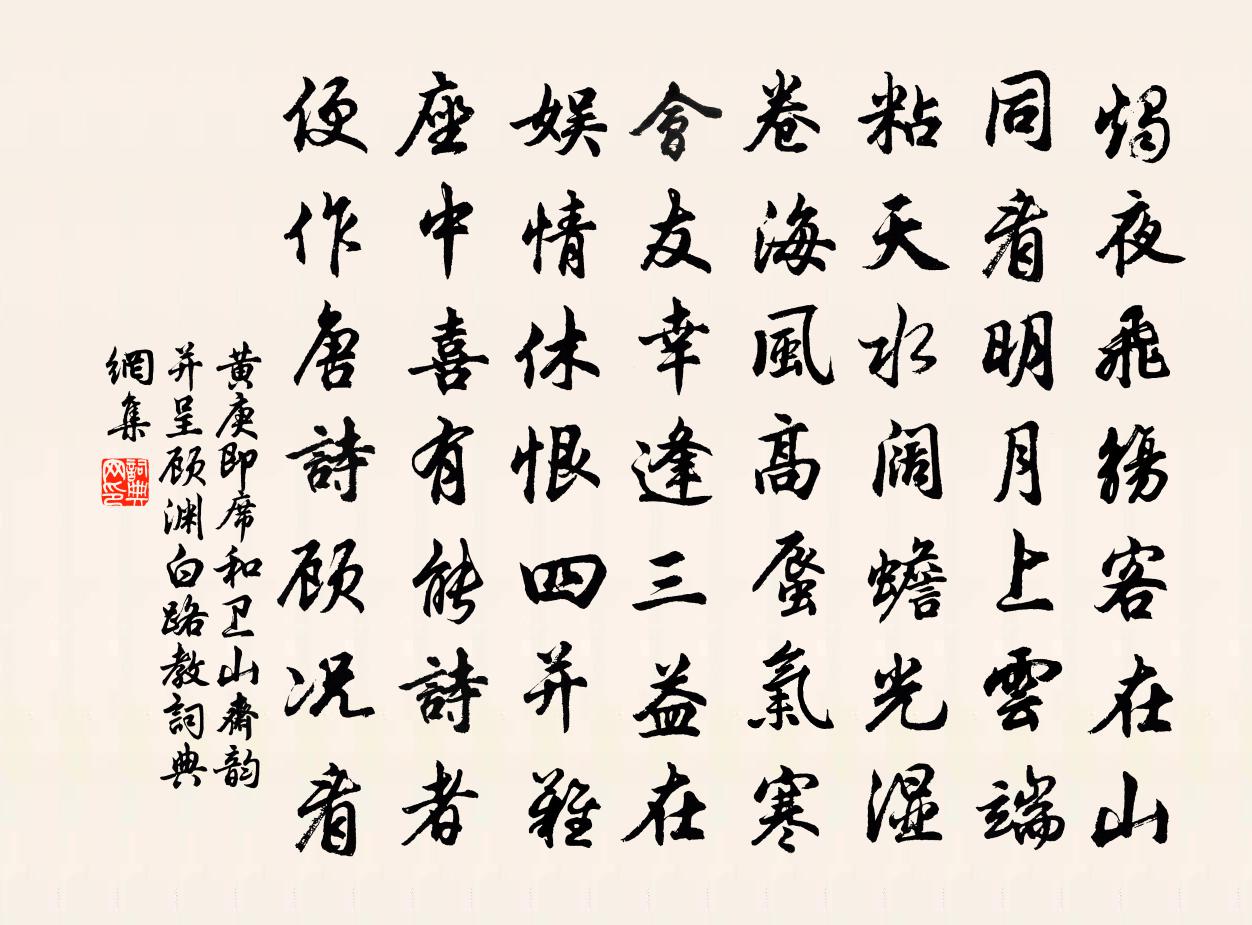 燭夜飛觴客在山
同看明月上雲端
粘天水阔蟾光湿
卷海風高蜃氣寒
會友幸逢三益在
娱情休恨四并難
座中喜有能詩者
便作唐詩顾况看
黄庚即席和卫山齋韵
并呈顾渊白路教詞典
網集
詞典网印